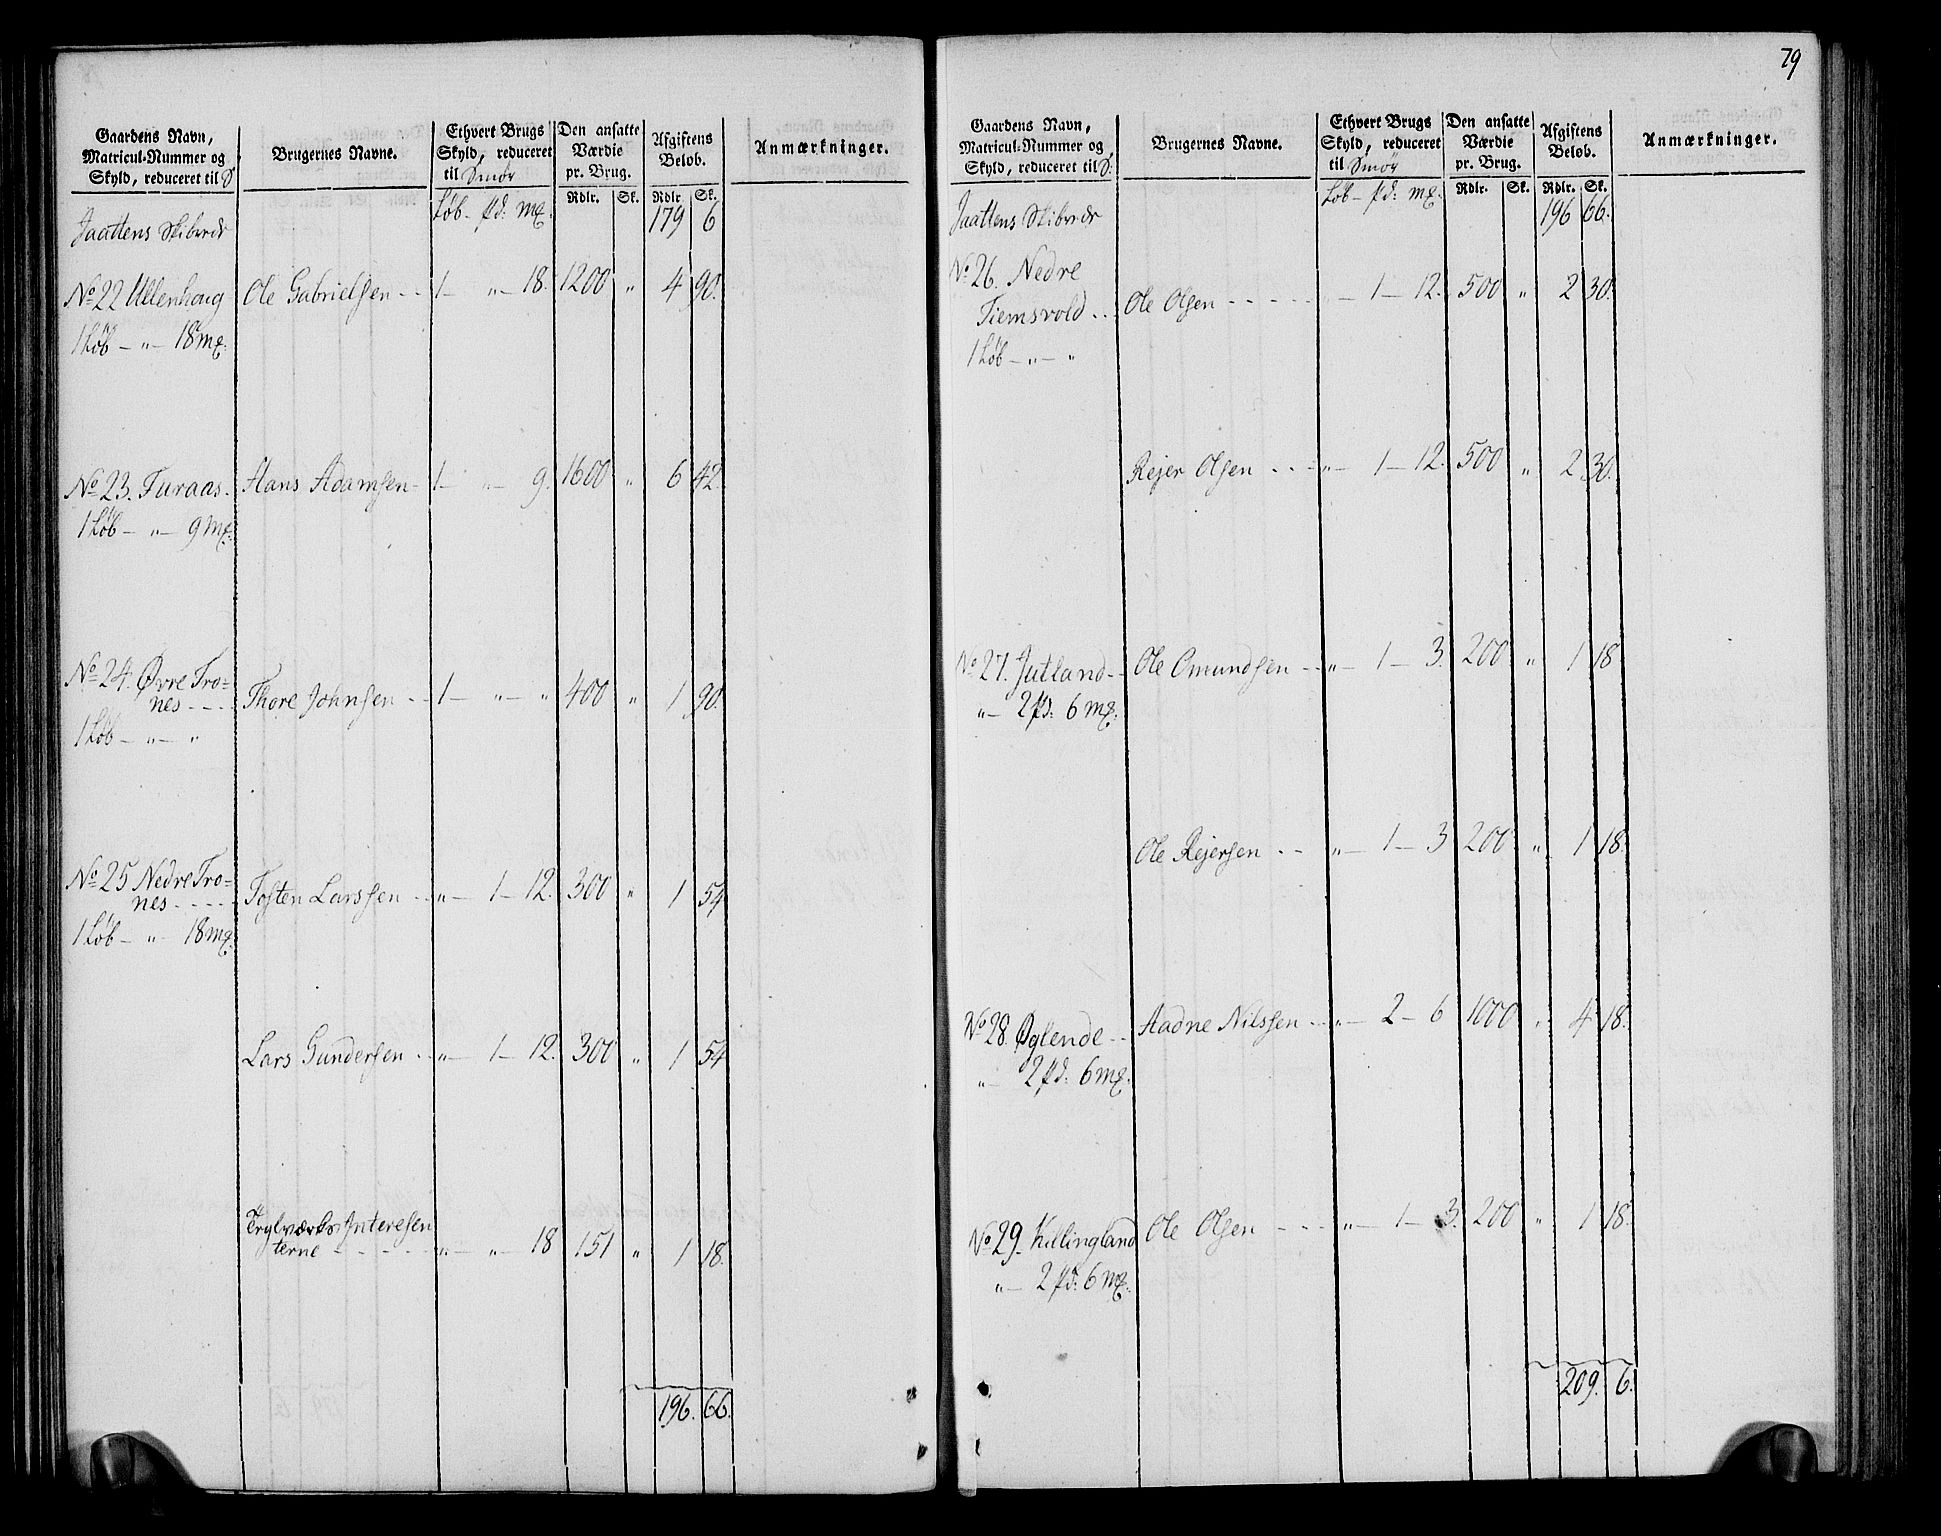 79
Gaardens Navn, Matricul-Nummer og Skyld, reduceret til S. | Brugernes Navne. | Ethvert Brugs Skyld, reduceret til Smör | Den ansatte Værdie pr. Brug. | Afgiftens Beløb. | Anmærkninger.
Løb - pd: mg. | Rdlr. | Sk. | Rdlr. | Sk.
Jaattens Skibrede 179 6
No 22 Ullenhoug Ole Gabrielsen - - 1 - " - 18. 1200 " 4 90.
1 Løb - " - 18 mg:
No 23. Furaas. Hans Adamsen - 1 - " - 9. 1600 " 6 42.
1 Løb - " - 9 mg:
No 24. Øvre Tro=
nes - - - Thore Johnsen - - 1 - " - " 400 " 1 90.
1 Løb - " - "
No 25 Nedre Tro=
nes - - - - Tosten Larssen - - " - 1 - 12. 300 " 1 54
1 Løb - " - 18 mg.
Lars Gundersen - - " - 1 - 12. 300 " 1 54
Teylværks Interesen
terne - - - - - " - " - 18 151 " 1 18.
196. 66.
Gaardens Navn, Matricul-Nummer og Skyld, reduceret til S: | Brugernes Navne. | Ethvert Brugs Skyld, reduceret til Smör | Den ansatte Værdie pr. Brug. | Afgiftens Beløb. | Anmærkninger.
Løb - pd: mg. | Rdlr. | Sk. | Rdlr. | Sk.
Jaattens Skibrede 196 66.
No 26. Nedre
Tiemsvold . . Ole Olsen - - - - - - 1 - 12. 500 " 2 30.
1 Løb - " - "
Rejer Olsen - - - " - 1 - 12. 500 " 2 30.
No 27. Jutland - - Ole Omundsen - - " - 1 - 3. 200 " 1 18
" - 2 pd: 6 mg:
Ole Rejersen - - " - 1 - 3 200 " 1 18.
No 28. Øglende - - Aadne Nilssen - - " - 2 - 6 1000 " 4 18.
" - 2 pd: 6 mg.
No 29. Killingland Ole Olsen - - - " - 1 - 3. 200 " 1 18.
" - 2 pd: 6 mg.
209. 6.